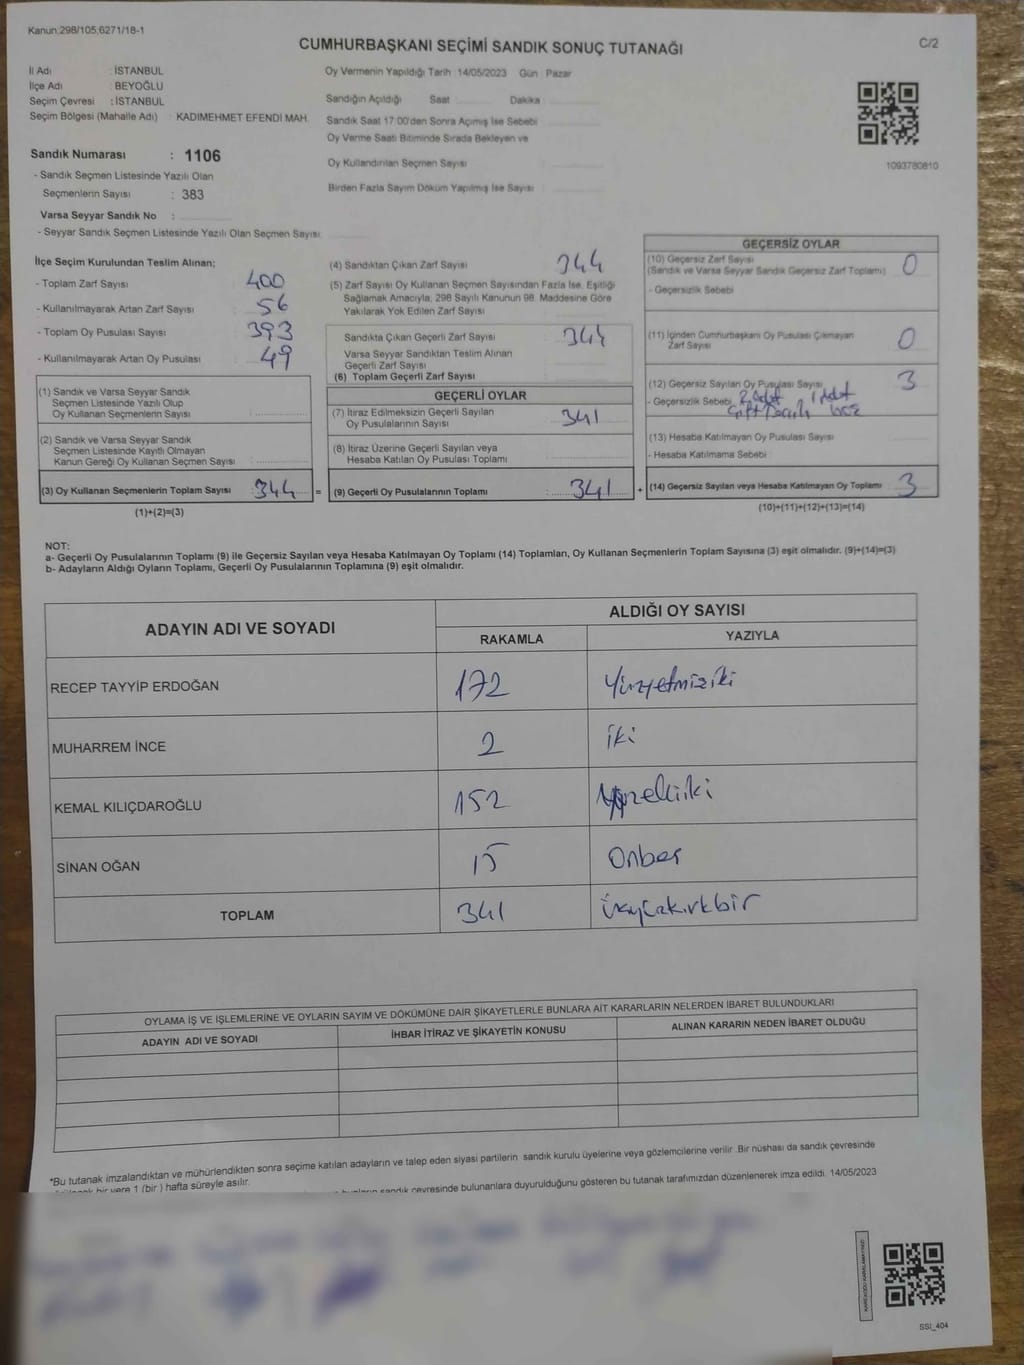 Kanun:298/105;6271/18-1
CUMHURBAŞKANI SEÇİMİ SANDIK SONUÇ TUTANAĞI
C/2
İl Adı : İSTANBUL
İlçe Adı : BEYOĞLU
Seçim Çevresi : İSTANBUL
Seçim Bölgesi (Mahalle Adı) : KADIMEHMET EFENDI MAH.
Sandık Numarası : 1106
- Sandık Seçmen Listesinde Yazılı Olan
Seçmenlerin Sayısı : 383
Varsa Seyyar Sandık No :
- Seyyar Sandık Seçmen Listesinde Yazılı Olan Seçmen Sayısı:
Oy Vermenin Yapıldığı Tarih :14/05/2023 Gün : Pazar
Sandığın Açıldığı Saat Dakika
Sandık Saat 17:00'den Sonra Açımış İse Sebebi
Oy Verme Saati Bitiminde Sırada Bekleyen ve
Oy Kullandırılan Seçmen Sayısı
Birden Fazla Sayım Döküm Yapılmış İse Sayısı
1093780810
İlçe Seçim Kurulundan Teslim Alınan;
- Toplam Zarf Sayısı : 400
- Kullanılmayarak Artan Zarf Sayısı : 56
- Toplam Oy Pusulası Sayısı : 393
- Kullanılmayarak Artan Oy Pusulası : 49
(1) Sandık ve Varsa Seyyar Sandık
Seçmen Listesinde Yazılı Olup
Oy Kullanan Seçmenlerin Sayısı
(2) Sandık ve Varsa Seyyar Sandık
Seçmen Listesinde Kayıtlı Olmayan
Kanun Gereği Oy Kullanan Seçmen Sayısı
(3) Oy Kullanan Seçmenlerin Toplam Sayısı : 344 =
(1)+(2)=(3)
(4) Sandıktan Çıkan Zarf Sayısı 344
(5) Zarf Sayısı Oy Kullanan Seçmen Sayısından Fazla İse, Eşitliği
Sağlamak Amacıyla, 298 Sayılı Kanunun 98. Maddesine Göre
Yakılarak Yok Edilen Zarf Sayısı
Sandıkta Çıkan Geçerli Zarf Sayısı 344
Varsa Seyyar Sandıktan Teslim Alınan
Geçerli Zarf Sayısı
(6) Toplam Geçerli Zarf Sayısı
GEÇERLİ OYLAR
(7) İtiraz Edilmeksizin Geçerli Sayılan
Oy Pusulalarının Sayısı 341
(8) İtiraz Üzerine Geçerli Sayılan veya
Hesaba Katılan Oy Pusulası Toplamı
(9) Geçerli Oy Pusulalarının Toplamı : 341 +
GEÇERSİZ OYLAR
(10) Geçersiz Zarf Sayısı
(Sandık ve Varsa Seyyar Sandık Geçersiz Zarf Toplamı) 0
- Geçersizlik Sebebi
(11) İçinden Cumhurbaşkanı Oy Pusulası Çıkmayan
Zarf Sayısı 0
(12) Geçersiz Sayılan Oy Pusulası Sayısı 3
- Geçersizlik Sebebi 2 Adet 1 Adet
(13) Hesaba Katılmayan Oy Pusulası Sayısı
- Hesaba Katılmama Sebebi
(14) Geçersiz Sayılan veya Hesaba Katılmayan Oy Toplamı 3
(10)+(11)+(12)+(13)=(14)
NOT:
a- Geçerli Oy Pusulalarının Toplamı (9) ile Geçersiz Sayılan veya Hesaba Katılmayan Oy Toplamı (14) Toplamları, Oy Kullanan Seçmenlerin Toplam Sayısına (3) eşit olmalıdır. (9)+(14)=(3)
b- Adayların Aldığı Oyların Toplamı, Geçerli Oy Pusulalarının Toplamına (9) eşit olmalıdır.
ADAYIN ADI VE SOYADI
ALDIĞI OY SAYISI
RAKAMLA YAZIYLA
RECEP TAYYİP ERDOĞAN 172 Yüzyetmişiki
MUHARREM İNCE 2 iki
KEMAL KILIÇDAROĞLU 152 Yüzelliiki
SİNAN OĞAN 15 Onbeş
TOPLAM 341 üçyüzkırkbir
OYLAMA İŞ VE İŞLEMLERİNE VE OYLARIN SAYIM VE DÖKÜMÜNE DAİR ŞİKAYETLERLE BUNLARA AİT KARARLARIN NELERDEN İBARET BULUNDUKLARI
ADAYIN ADI VE SOYADI İHBAR İTİRAZ VE ŞİKAYETİN KONUSU ALINAN KARARIN NEDEN İBARET OLDUĞU
*Bu tutanak imzalandıktan ve mühürlendikten sonra seçime katılan adayların ve talep eden siyasi partilerin sandık kurulu üyelerine veya gözlemcilerine verilir. Bir nüshası da sandık çevresinde
bir yere 1 (bir) hafta süreyle asılır.
sandık çevresinde bulunanlara duyurulduğunu gösteren bu tutanak tarafımızdan düzenlenerek imza edildi. 14/05/2023
KAREKODU KARALAMAYINIZ!
SSI_404